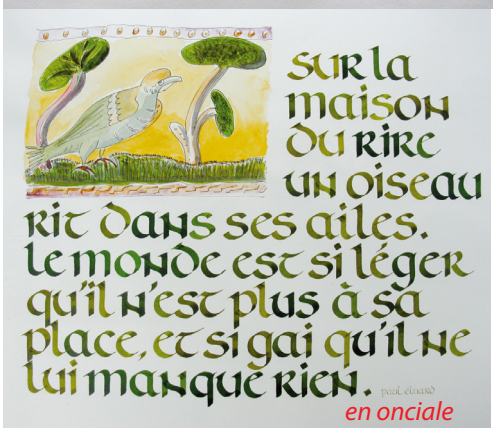 sur la
maison
du rire
un oiseau
rit dans ses ailes.
le monde est si léger
qu'il n'est plus à sa
place, et si gai qu'il ne
lui manque rien.
paul éluard
en onciale